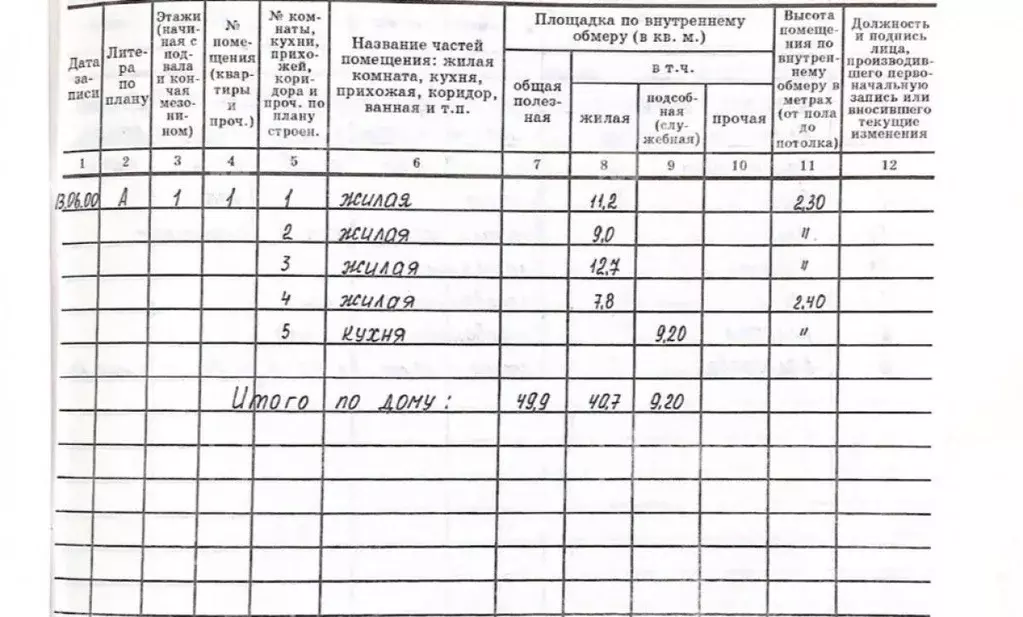 Дата за- писи
Лите- ра по плану
Этажи (начи- ная с под- вала и кон- чая мезо- ни- ном)
№ поме- щения (квар- тиры и проч.)
№ ком- наты, кухни, прихо- жей, кори- дора и проч. по плану строен.
Название частей помещения: жилая комната, кухня, прихожая, коридор, ванная и т.п.
Площадка по внутреннему обмеру (в кв. м.)
общая полез- ная
в т.ч.
жилая
подсоб- ная (слу- жебная)
прочая
Высота помеще- ния по внутрен- нему обмеру в метрах (от пола до потолка)
Должность и подпись лица, производив- шего перво- начальную запись или вносившего текущие изменения
1 2 3 4 5 6 7 8 9 10 11 12
13.06.00 А 1 1 1 жилая 11,2 2.30
2 жилая 9,0 "
3 жилая 12,7 "
4 жилая 7,8 2.40
5 кухня 9.20 "
Итого по дому: 49,9 40,7 9.20